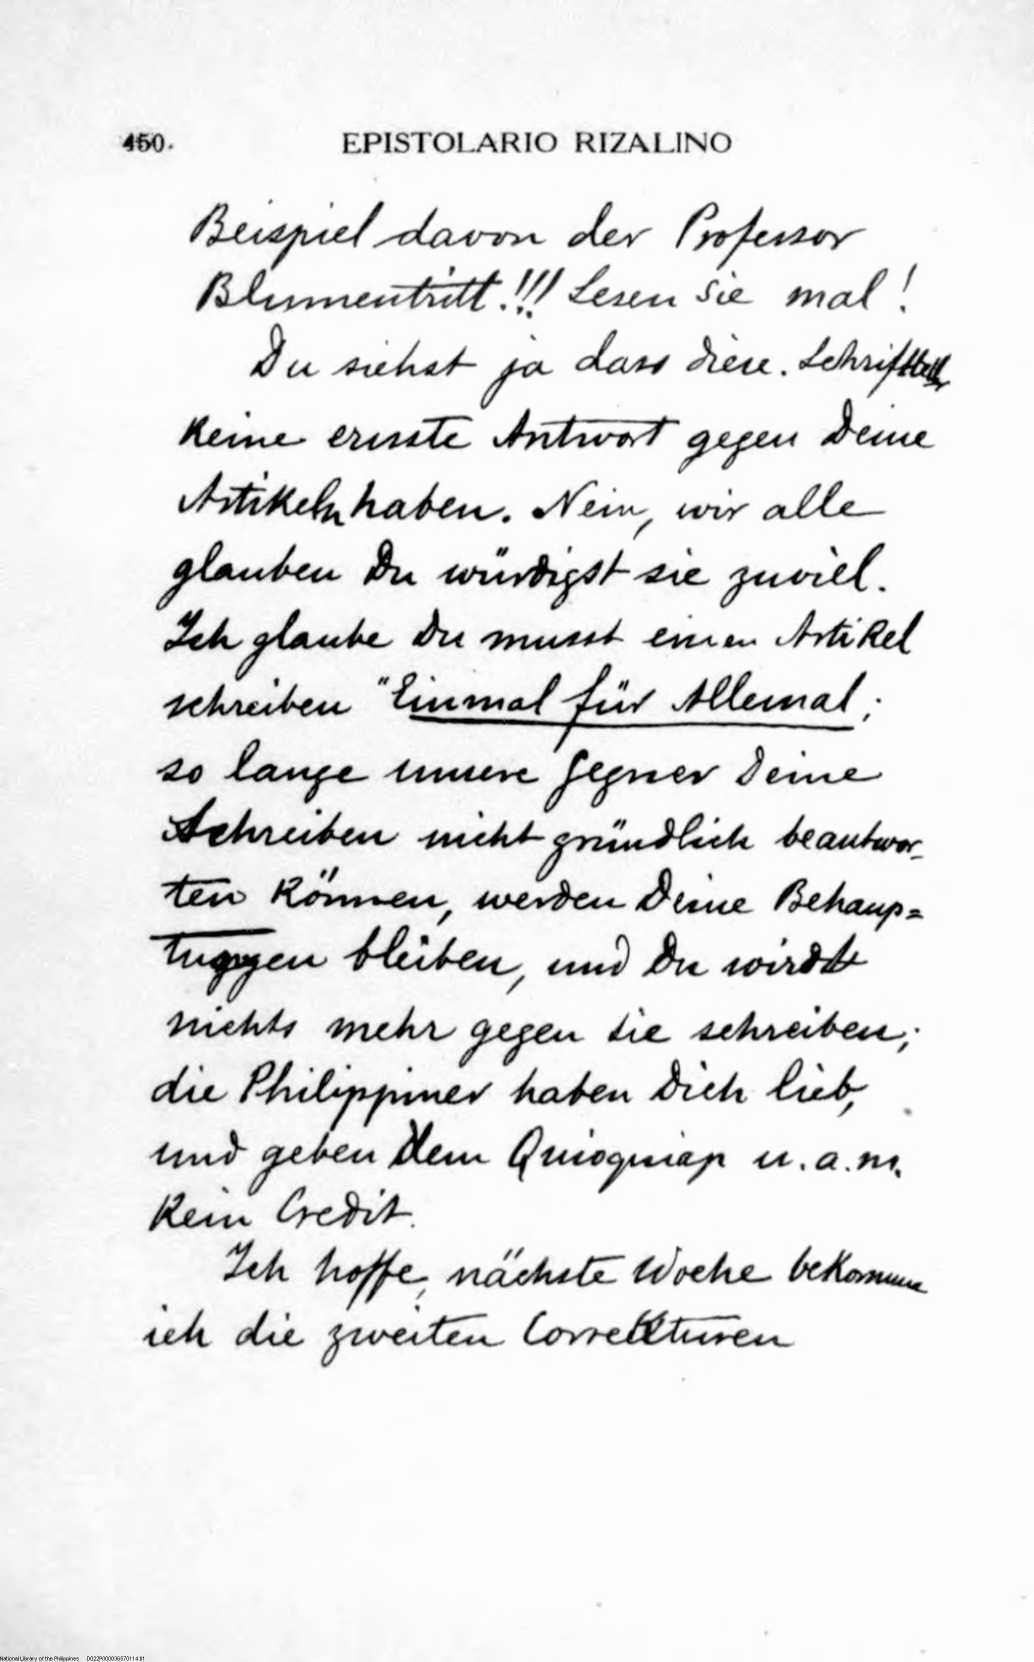 450.
EPISTOLARIO RIZALINO
Beispiel davon der Professor
Blumentritt!!! Lesen Sie mal!
Du siehst ja dass diese Schriftsteller
keine ernste Antwort gegen Deine
Artikeln haben. Nein, wir alle
glauben Du würdigst sie zuviel.
Ich glaube Du musst einen Artikel
schreiben "Einmal für Allemal;
so lange unsere Gegner Deine
Schreiben nicht gründlich beantwor-
ten können, werden Deine Behaup=
tungen bleiben, und Du wirdst
nichts mehr gegen sie schreiben;
die Philippiner haben Dich lieb,
und geben dem Quioquiap u.a.m.
kein Credit.
Ich hoffe, nächste Woche bekomme
ich die zweiten Correkturen
National Library of the Philippines